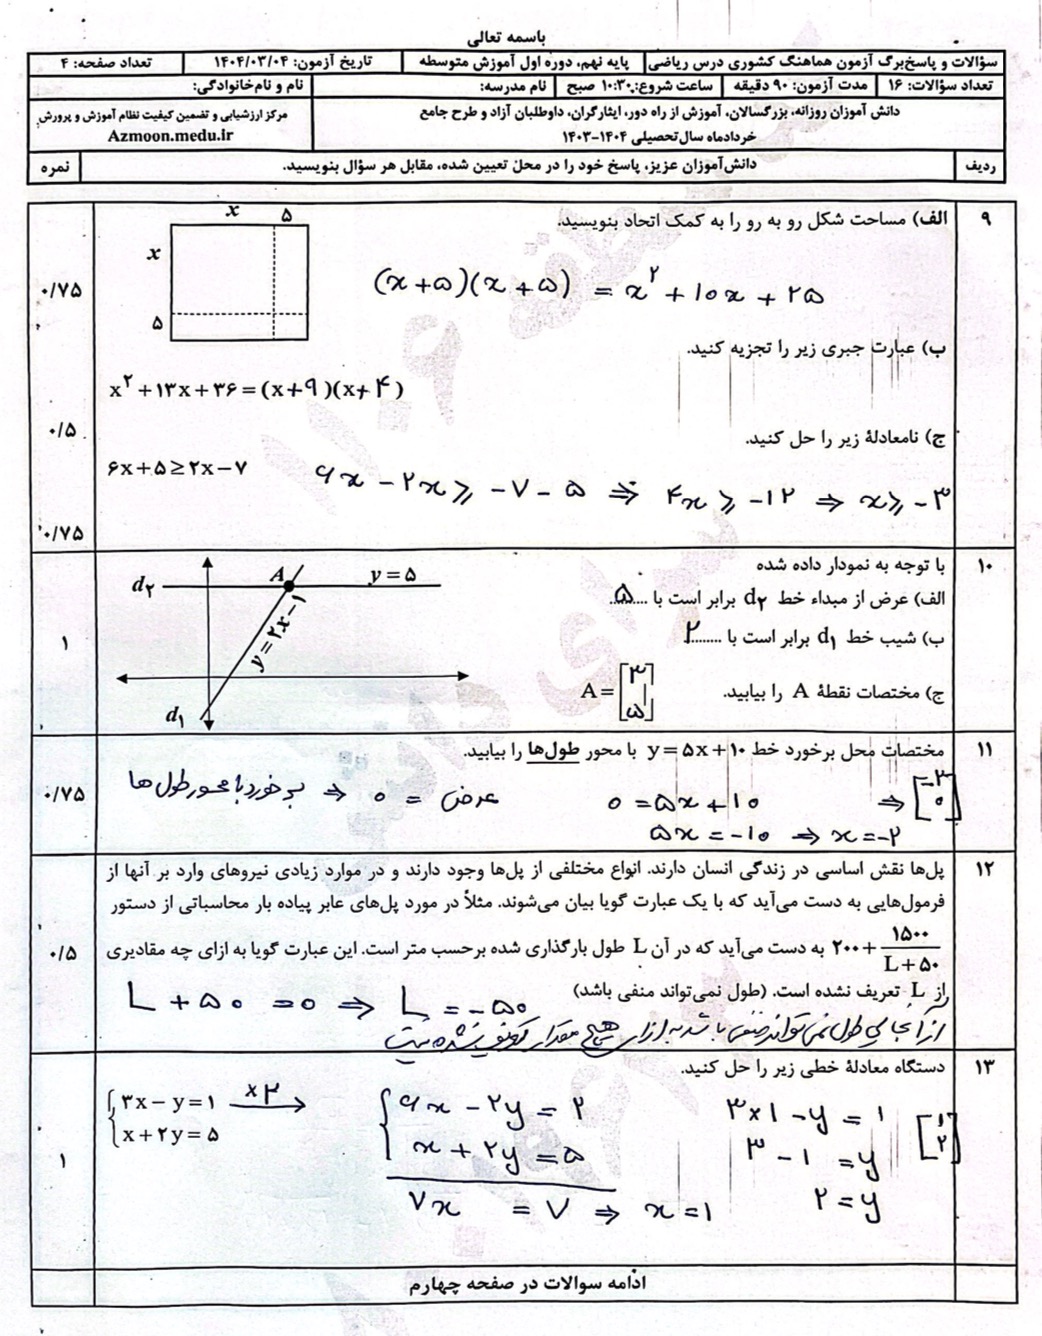 باسمه تعالی
سؤالات و پاسخ‌برگ آزمون هماهنگ کشوری درس ریاضی | پایه نهم، دوره اول آموزش متوسطه | تاریخ آزمون: ۱۴۰۴/۰۳/۰۴ | تعداد صفحه: ۴
تعداد سؤالات: ۱۶ | مدت آزمون: ۹۰ دقیقه | ساعت شروع: ۱۰:۳۰ صبح | نام مدرسه: | نام و نام‌خانوادگی:
دانش آموزان روزانه، بزرگسالان، آموزش از راه دور، ایثارگران، داوطلبان آزاد و طرح جامع
خردادماه سال‌تحصیلی ۱۴۰۴-۱۴۰۳
مرکز ارزشیابی و تضمین کیفیت نظام آموزش و پرورش
Azmoon.medu.ir
ردیف | دانش‌آموزان عزیز، پاسخ خود را در محل تعیین شده، مقابل هر سؤال بنویسید. | نمره
۹
الف) مساحت شکل رو به رو را به کمک اتحاد بنویسید.
x ۵
x
۵
(x+۵)(x+۵) = x² + ۱۰x + ۲۵
۰/۷۵
ب) عبارت جبری زیر را تجزیه کنید.
x² + ۱۳x + ۳۶ = (x+۹)(x+۴)
۰/۵
ج) نامعادلهٔ زیر را حل کنید.
۶x+۵ ≥ ۲x−۷
۶x − ۲x ≥ −۷ − ۵ ⇒ ۴x ≥ −۱۲ ⇒ x ≥ −۳
۰/۷۵
۱۰
با توجه به نمودار داده شده
الف) عرض از مبداء خط d۲ برابر است با ...۵...
ب) شیب خط d۱ برابر است با ...۲...
ج) مختصات نقطهٔ A را بیابید. A = [۳ ۵]
d۲ A y = ۵
y = ۲x − ۱
d۱
۱
۱۱
مختصات محل برخورد خط y = ۵x + ۱۰ با محور طول‌ها را بیابید.
برخورد با محور طول ها ⇒ ۰ = عرض
۰ = ۵x + ۱۰ ⇒ [−۲ ۰]
۵x = −۱۰ ⇒ x = −۲
۰/۷۵
۱۲
پل‌ها نقش اساسی در زندگی انسان دارند. انواع مختلفی از پل‌ها وجود دارند و در موارد زیادی نیروهای وارد بر آنها از
فرمول‌هایی به دست می‌آید که با یک عبارت گویا بیان می‌شوند. مثلاً در مورد پل‌های عابر پیاده بار محاسباتی از دستور
۲۰۰ + ۱۵۰۰/(L+۵۰) به دست می‌آید که در آن L طول بارگذاری شده برحسب متر است. این عبارت گویا به ازای چه مقادیری
از L تعریف نشده است. (طول نمی‌تواند منفی باشد)
L + ۵۰ = ۰ ⇒ L = −۵۰
از آنجایی طول نمی تواند منفی باشد به ازای هیچ مقدار تعریف نشده نیست
۰/۵
۱۳
دستگاه معادلهٔ خطی زیر را حل کنید.
۳x − y = ۱ ×۲ ⟶
x + ۲y = ۵
۶x − ۲y = ۲
x + ۲y = ۵
۷x = ۷ ⇒ x = ۱
۳×۱ − y = ۱
۳ − ۱ = y
۲ = y
[۱ ۲]
۱
ادامه سوالات در صفحه چهارم